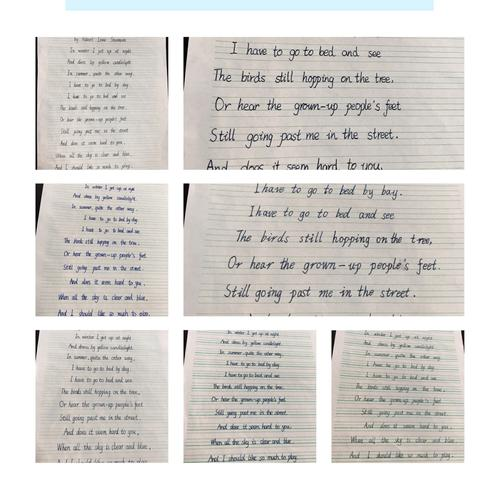 by Robert Louis Stevenson
In winter I get up at night
And dress by yellow candlelight.
In summer, quite the other way,
I have to go to bed by day.
I have to go to bed and see
The birds still hopping on the tree,
Or hear the grown-up people's feet
Still going past me in the street.
And does it seem hard to you,
When all the sky is clear and blue,
And I should like so much to play,
I have to go to bed and see
The birds still hopping on the tree,
Or hear the grown-up people's feet
Still going past me in the street.
And does it seem hard to you,
In winter I get up at night
And dress by yellow candlelight.
In summer, quite the other way,
I have to go to bed by day.
I have to go to bed and see
The birds still hopping on the tree,
Or hear the grown-up people's feet
Still going past me in the street.
And does it seem hard to you,
When all the sky is clear and blue,
And I should like so much to play,
I have to go to bed by bay.
I have to go to bed and see
The birds still hopping on the tree,
Or hear the grown-up people's feet.
Still going past me in the street.
In winter I get up at night
And dress by yellow candlelight.
In summer, quite the other way,
I have to go to bed by day.
I have to go to bed and see
The birds still hopping on the tree,
Or hear the grown-up people's feet
Still going past me in the street.
And does it seem hard to you,
When all the sky is clear and blue,
And I should like so much to play,
In winter I get up at night
And dress by yellow candlelight.
In summer, quite the other way,
I have to go to bed by day.
I have to go to bed and see
The birds still hopping on the tree,
Or hear the grown-up people's feet
Still going past me in the street.
And does it seem hard to you,
When all the sky is clear and blue,
And I should like so much to play,
In winter I get up at night
And dress by yellow candlelight.
In summer, quite the other way,
I have to go to bed by day.
I have to go to bed and see
The birds still hopping on the tree,
Or hear the grown-up people's feet
Still going past me in the street.
And does it seem hard to you,
When all the sky is clear and blue
And I should like so much to play,